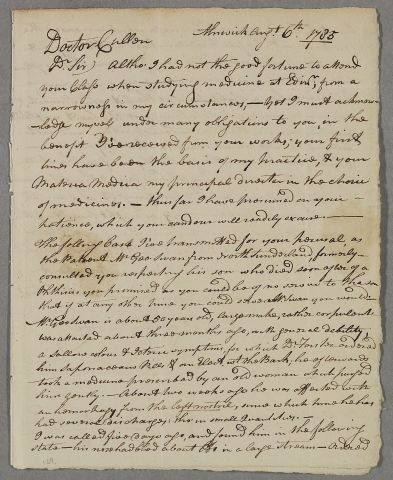 Alnwick Augt 6th. 1785
Doctor Cullen
Dr Sir) Altho' I had not the good fortune to attend
your Class when studying medicine at Edinr. from a
narrowness in my circumstances, — yet I must acknow-
ledge myself under many obligations to you, for the
benefit I've received from your works; your first
lines have been the basis of my practice, & your
Materia Medica my principal director in the choice
of medicines. — thus far I have presumed on your
patience, which your candour will readily excuse. —
The following Case I've transmitted for your perusal, as
the Patient Mr. Geo: Swan from North Sunderland, formerly
consulted you respecting his son who died soon after of a
Phthisis, you promised as you could be of no service to his son
that if at any other time you could serve Mr. Swan you would
Mr. Geo Swan is about 50 years old, large make, rather corpulent
was attacked about three months ago, with general debility,
a sallow colour & Icteric symptoms, for which Dr. ordered
him Saponaceous Pills & an Elect. wt. the Bark, he afterwards
took a medicine prescribed by an old woman which purged
him gently. — About two weeks ago he was affected with
an hemorrhagy from the left nostril, since which time he has
had several discharges, tho' in small quantities. —
I was called five days ago, and found him in the following
state — his nose had bled about in a large stream —